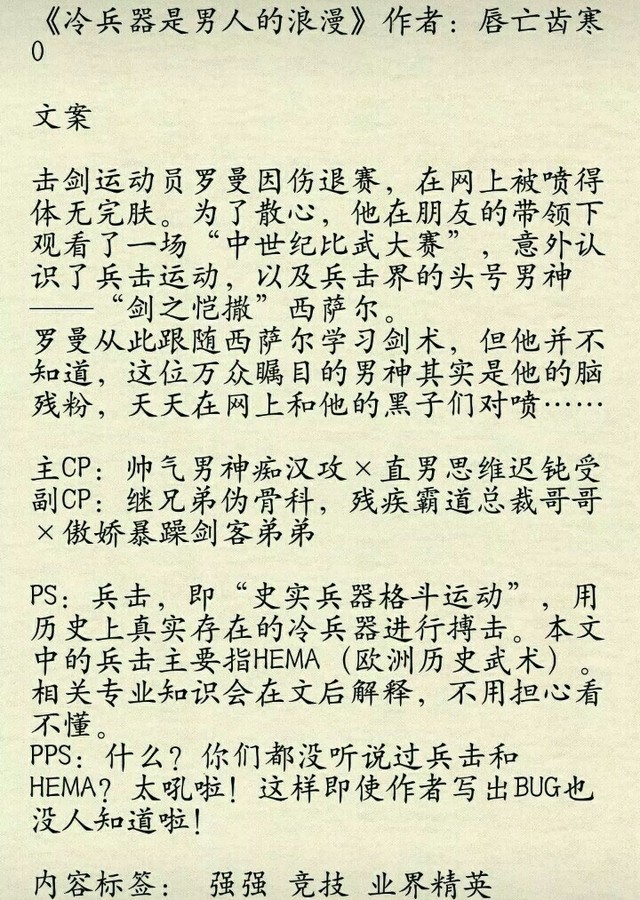 《冷兵器是男人的浪漫》作者：唇亡齿寒
0
文案
击剑运动员罗曼因伤退赛，在网上被喷得
体无完肤。为了散心，他在朋友的带领下
观看了一场“中世纪比武大赛”，意外认
识了兵击运动，以及兵击界的头号男神
——“剑之恺撒”西萨尔。
罗曼从此跟随西萨尔学习剑术，但他并不
知道，这位万众瞩目的男神其实是他的脑
残粉，天天在网上和他的黑子们对喷……
主CP：帅气男神痴汉攻×直男思维迟钝受
副CP：继兄弟伪骨科，残疾霸道总裁哥哥
×傲娇暴躁剑客弟弟
PS：兵击，即“史实兵器格斗运动”，用
历史上真实存在的冷兵器进行搏击。本文
中的兵击主要指HEMA（欧洲历史武术）。
相关专业知识会在文后解释，不用担心看
不懂。
PPS：什么？你们都没听说过兵击和
HEMA？太吼啦！这样即使作者写出BUG也
没人知道啦！
内容标签： 强强 竞技 业界精英